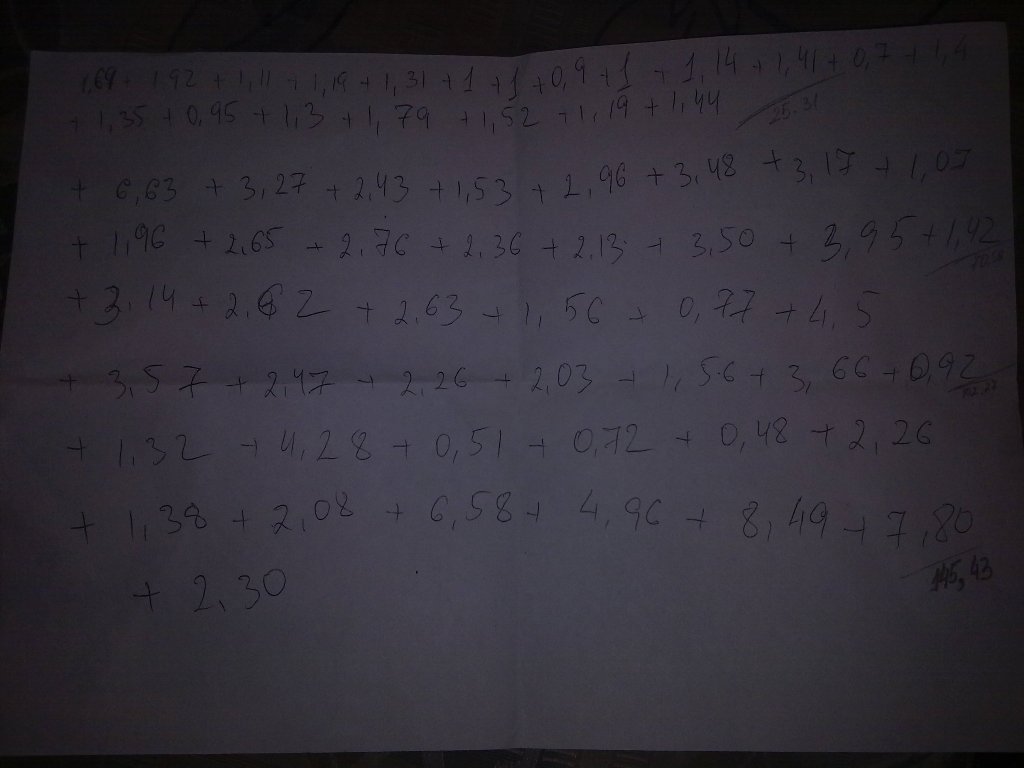 1,69 + 1,92 + 1,11 + 1,19 + 1,31 + 1 + 1 + 0,9 + 1 + 1,14 + 1,41 + 0,7 + 1,4
+ 1,35 + 0,95 + 1,3 + 1,79 + 1,52 + 1,19 + 1,44 25.31
+ 6,63 + 3,27 + 2,43 + 1,53 + 2,96 + 3,48 + 3,17 + 1,07
+ 1,96 + 2,65 + 2,76 + 2,36 + 2,13 + 3,50 + 3,95 + 1,42
+ 3,14 + 2,62 + 2,63 + 1,56 + 0,77 + 4,5
+ 3,57 + 2,47 + 2,26 + 2,03 + 1,56 + 3,66 + 0,92
+ 1,32 + 4,28 + 0,51 + 0,72 + 0,48 + 2,26
+ 1,38 + 2,08 + 6,58 + 4,96 + 8,49 + 7,80
145,43
+ 2,30